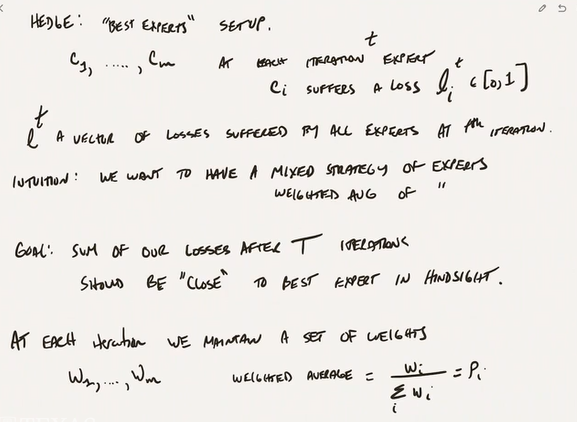 HEDGE: "BEST EXPERTS" SETUP.
C₁, ....., Cₘ AT EACH ITERATION t EXPERT
Cᵢ SUFFERS A LOSS lᵢᵗ ∈ [0,1]
lᵗ A VECTOR OF LOSSES SUFFERED BY ALL EXPERTS AT tth ITERATION.
INTUITION: WE WANT TO HAVE A MIXED STRATEGY OF EXPERTS
WEIGHTED AVG OF "
GOAL: SUM OF OUR LOSSES AFTER T ITERATIONS
SHOULD BE "CLOSE" TO BEST EXPERT IN HINDSIGHT.
AT EACH Iteration WE MAINTAIN A SET OF WEIGHTS
W₁, ...., Wₘ WEIGHTED AVERAGE = wᵢ / ∑ᵢ wᵢ = Pᵢ